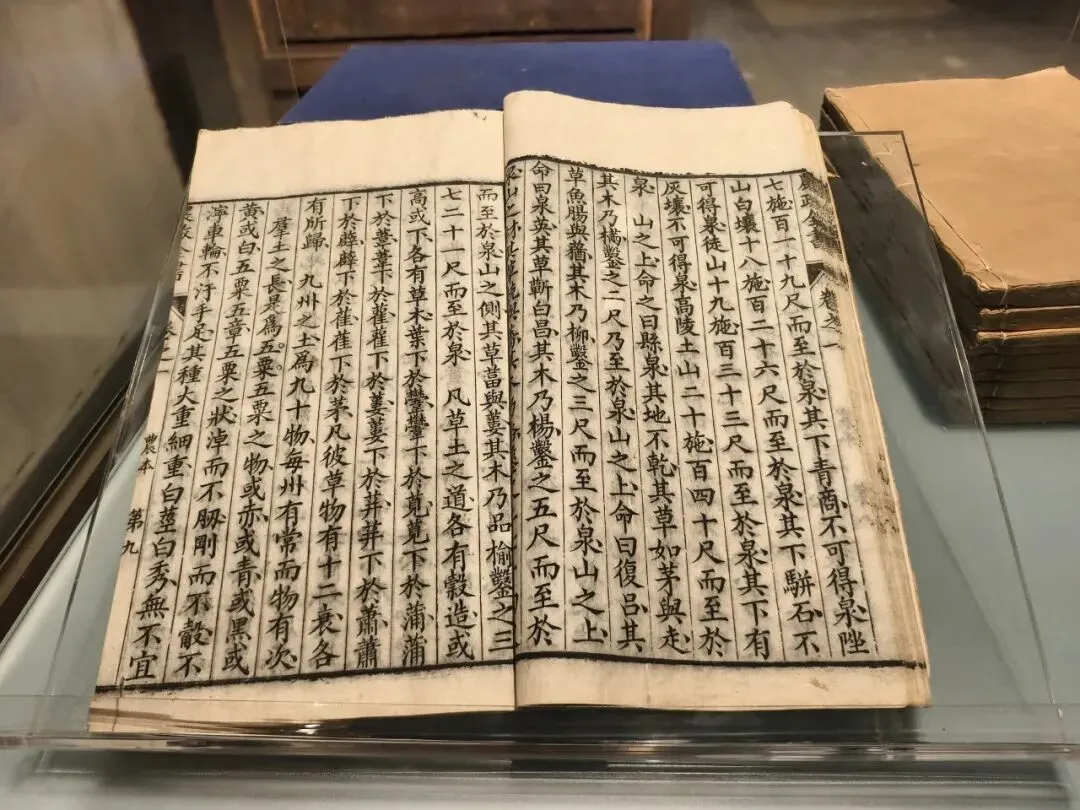 農政全書 卷之一
七施百一十九尺而至於泉其下青商不可得泉陛
山白壤十八施百二十六尺而至於泉其下駢石不
可得泉徙山十九施百三十三尺而至於泉其下有
灰壤不可得泉高陵土山二十施百四十尺而至於
泉 山之上命之曰縣泉其地不乾其草如茅與走
其木乃樠鑿之二尺乃至於泉山之上命曰復呂其
草魚腸與蕕其木乃柳鑿之三尺而至於泉山之上
命曰泉英其草蘄白昌其木乃楊鑿之五尺而至於
而至於泉山之側其草葍與蔞其木乃品榆鑿之三
七二十一尺而至於泉 凡草土之道各有穀造或
高或下各有草木葉下於下於莧莧下於蒲蒲
下於葦葦下於雚雚下於蔞蔞下於荓荓下於蕭蕭
下於薜薜下於萑萑下於茅凡彼草物有十二衰各
有所歸 九州之土為九十物每州有常而物有次
羣土之長是爲五粟五粟之物或赤或青或黑或
黃或白五粟五章五粟之狀淖而不肕剛而不觳不
濘車輪不汙手足其種大重細重白莖白秀無不宜
農本 第九